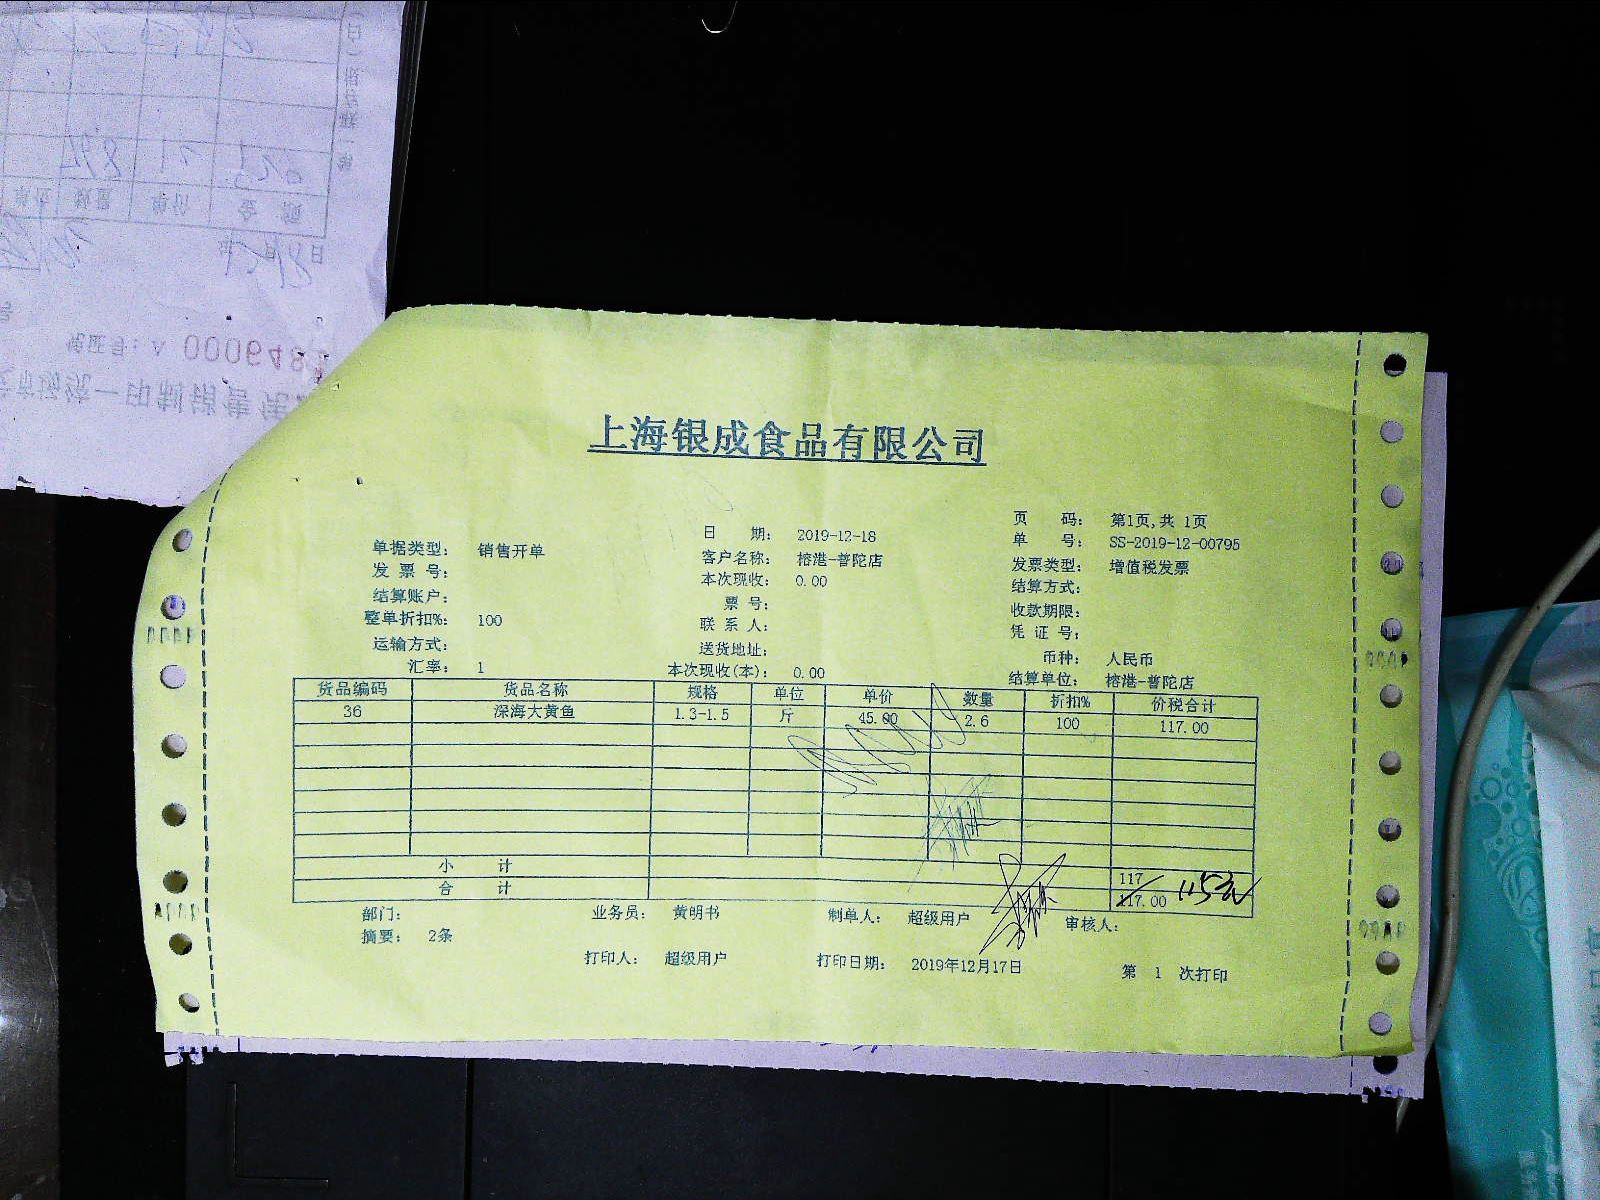 上海银成食品有限公司
单据类型： 销售开单 日 期： 2019-12-18 页 码： 第1页,共 1页
发 票 号： 客户名称： 榕港-普陀店 单 号： SS-2019-12-00795
结算账户： 本次现收： 0.00 发票类型： 增值税发票
整单折扣%： 100 票 号： 结算方式：
运输方式： 联 系 人： 收款期限：
汇率： 1 送货地址： 凭 证 号：
本次现收(本)： 0.00 币种： 人民币
结算单位： 榕港-普陀店
货品编码 货品名称 规格 单位 单价 数量 折扣% 价税合计
36 深海大黄鱼 1.3-1.5 斤 45.00 2.6 100 117.00
小 计 117
合 计 117.00
部门： 业务员： 黄明书 制单人： 超级用户 审核人：
摘要： 2条
打印人： 超级用户 打印日期： 2019年12月17日 第 1 次打印
凭证号：A 000648
单位 数量 单价 金 额
年 月 日